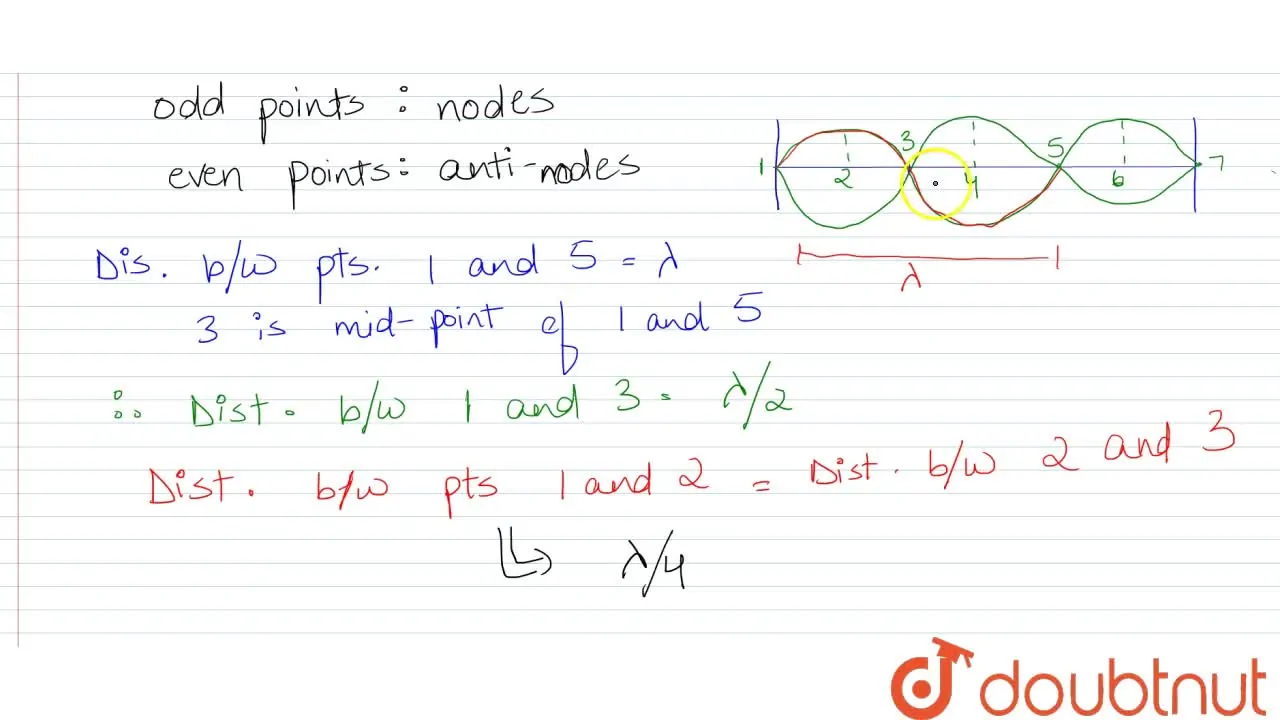 odd points : nodes
even points: anti-nodes
1 2 3 4 5 6 7
λ
Dis. b/w pts. 1 and 5 = λ
3 is mid-point of 1 and 5
∴ Dist. b/w 1 and 3 = λ/2
Dist. b/w pts 1 and 2 = Dist. b/w 2 and 3
λ/4
doubtnut